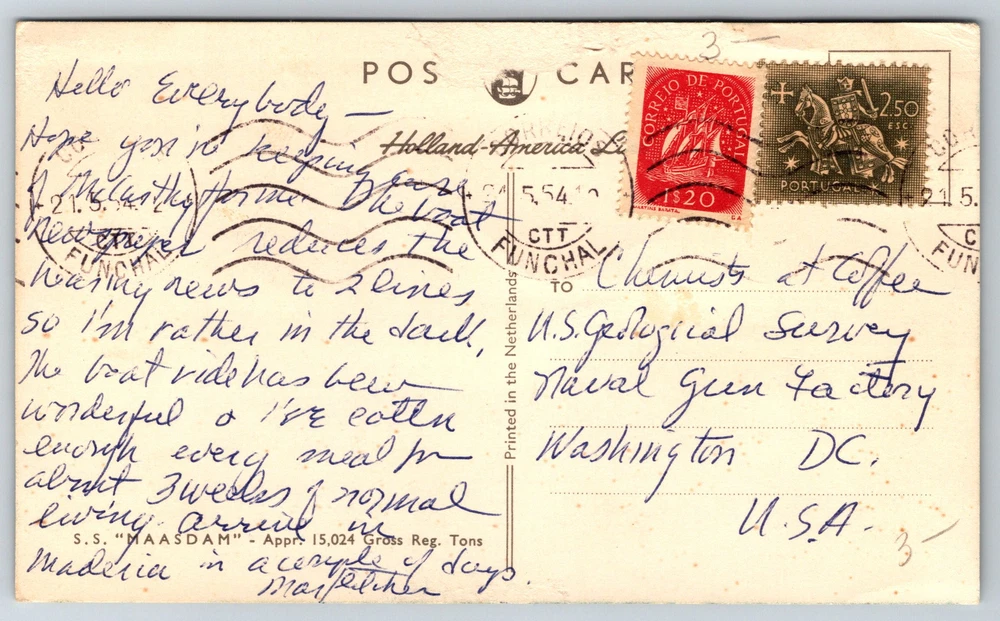 3 —
POS CAR
Holland-America Li
CORREIO DE PORTUGAL
1$20
2.50
ESC.
PORTUGAL
21.5.54.
CTT
FUNCHAL
21.5.54.
CTT
FUNCHAL
21.5.
FUN
Hello Everybody —
Hope you're keeping
of the The boat
newspaper reduces the
hearing news to 2 lines
so I'm rather in the dark,
The boat ride has been
wonderful & I've eaten
enough every meal for
about 3 weeks of normal
living. Arrive in
Maderia in a couple of days.
S.S. "MAASDAM" - Appr. 15,024 Gross Reg. Tons
Printed in the Netherlands
TO
Chemists at Coffee
U.S. Geological Survey
Naval Gun Factory
Washington DC.
U.S.A.
3-